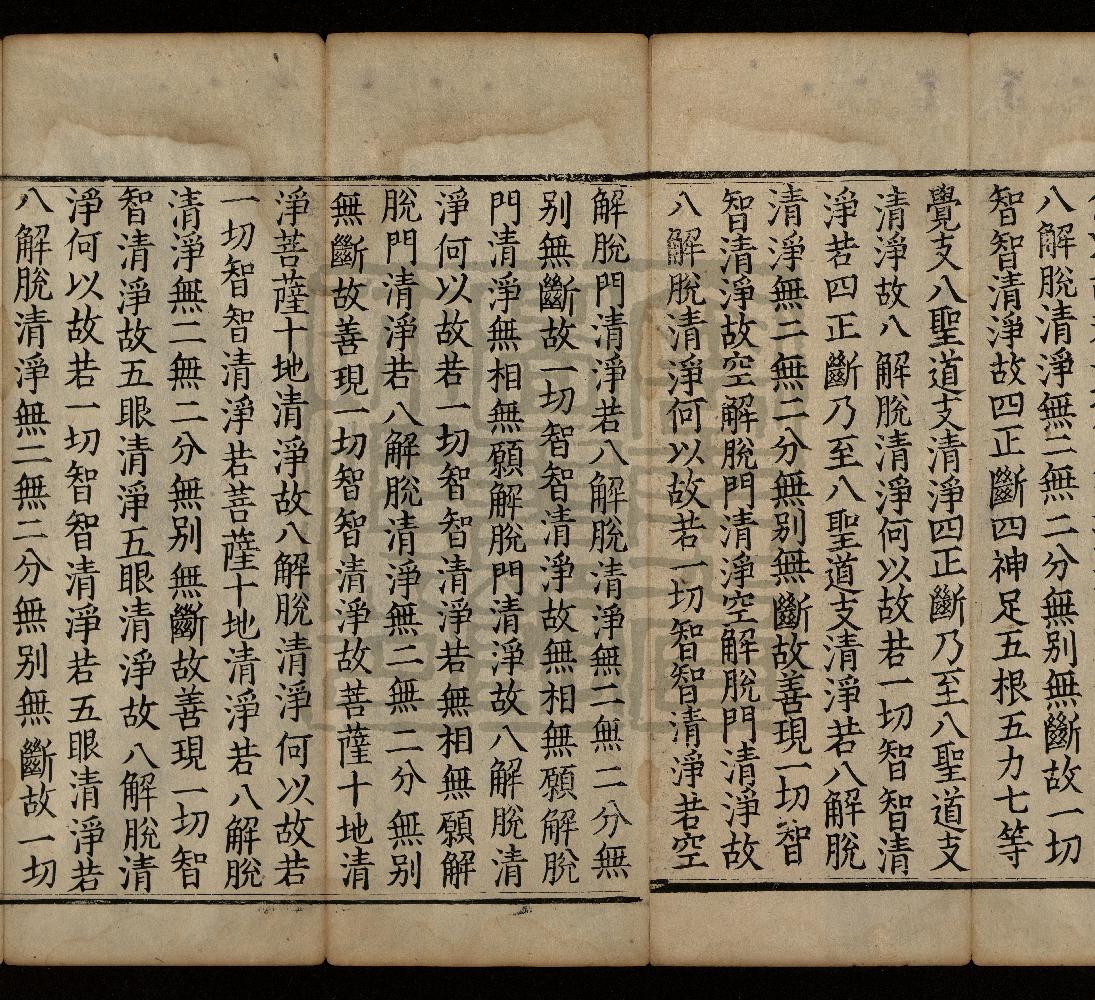 八解脫清淨無二無二分無別無斷故一切
智智清淨故四正斷四神足五根五力七等
覺支八聖道支清淨四正斷乃至八聖道支
清淨故八解脫清淨何以故若一切智智清
淨若四正斷乃至八聖道支清淨若八解脫
清淨無二無二分無別無斷故善現一切智
智清淨故空解脫門清淨空解脫門清淨故
八解脫清淨何以故若一切智智清淨若空
解脫門清淨若八解脫清淨無二無二分無
別無斷故一切智智清淨故無相無願解脫
門清淨無相無願解脫門清淨故八解脫清
淨何以故若一切智智清淨若無相無願解
脫門清淨若八解脫清淨無二無二分無別
無斷故善現一切智智清淨故菩薩十地清
淨菩薩十地清淨故八解脫清淨何以故若
一切智智清淨若菩薩十地清淨若八解脫
清淨無二無二分無別無斷故善現一切智
智清淨故五眼清淨五眼清淨故八解脫清
淨何以故若一切智智清淨若五眼清淨若
八解脫清淨無二無二分無別無斷故一切